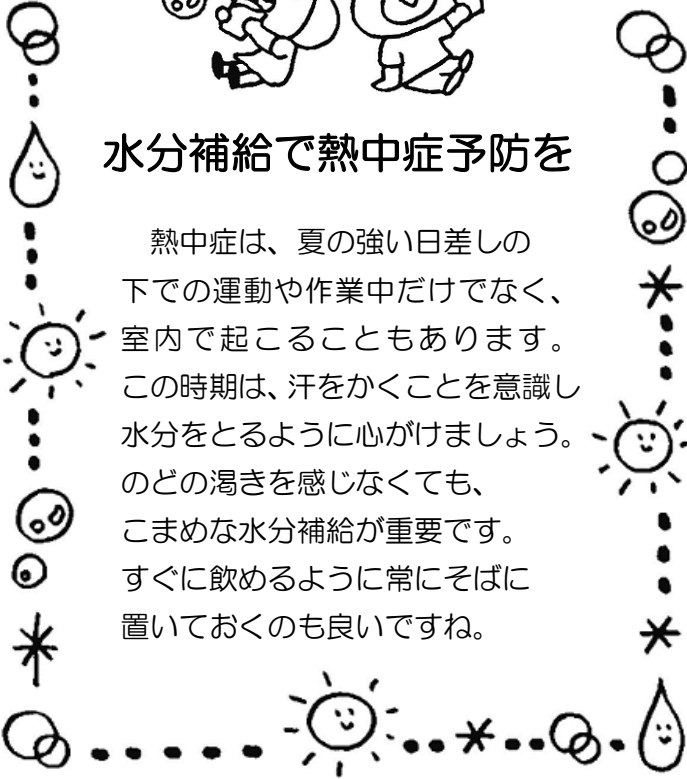 水分補給で熱中症予防を
　熱中症は、夏の強い日差しの
下での運動や作業中だけでなく、
室内で起こることもあります。
この時期は、汗をかくことを意識し
水分をとるように心がけましょう。
のどの渇きを感じなくても、
こまめな水分補給が重要です。
すぐに飲めるように常にそばに
置いておくのも良いですね。